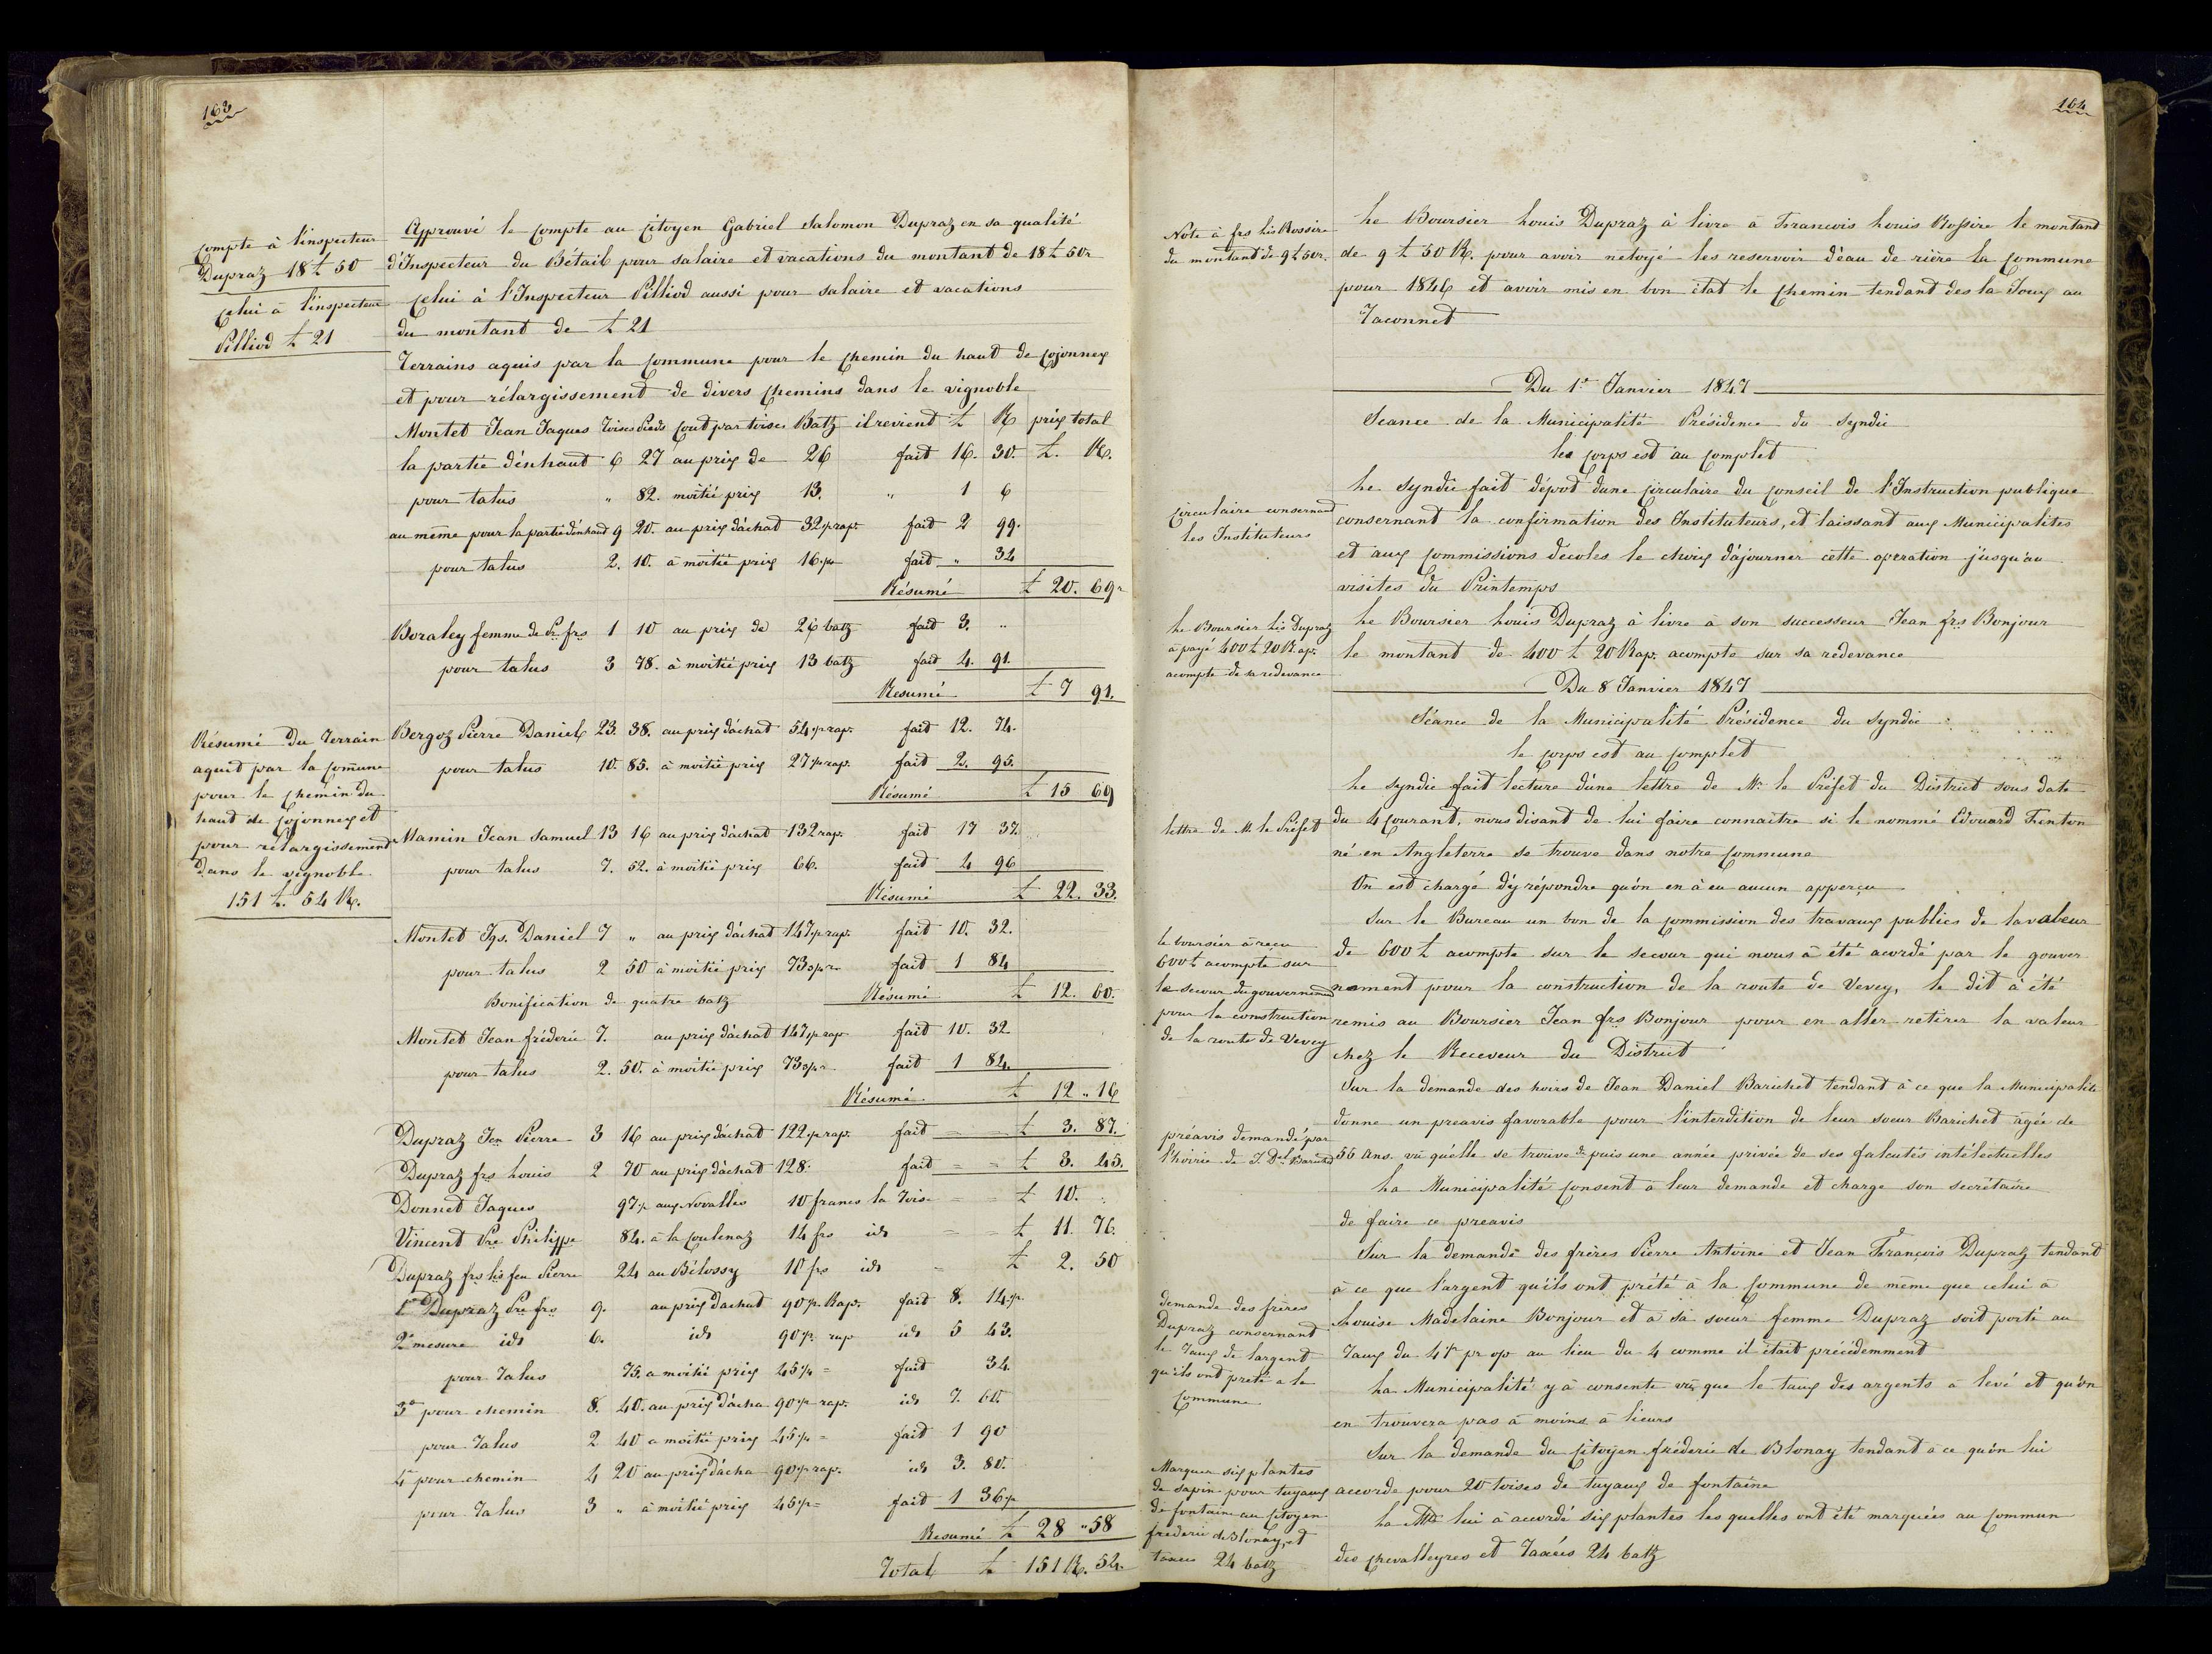 163
compte à l'inspecteur
Dupraz 18 £ 50
Celui à l'inspecteur
Pilliod £ 21
Approuvé le Compte au Citoyen Gabriel Salomon Dupraz en sa qualité
d'Inspecteur du Bétail pour salaire et vacations du montant de 18 £ 50 r
Celui à l'Inspecteur Pilliod aussi pour salaire et vacations
du montant de £ 21
Terrains aquis par la Commune pour le Chemin du haut de Cojonnex
et pour rélargissement de divers Chemins dans le vignoble
Montet Jean Jaques Toises Pieds Cout par toises Batz il revient £ R prix total
la partie d'enhaut 6 27 au prix de 26 fait 16. 30. £. R.
pour talus " 82. moitié prix 13. " 1 6
au même pour la partie d'enhaut 9 20. au prix d'achat 32 p rap. fait 2 99.
pour talus 2. 10. à moitié prix 16. p fait " 34
Résumé £ 20. 69 r
Boraley femme de Pre frs 1 10 au prix de 26 batz fait 3. "
pour talus 3 78. à moitié prix 13 batz fait 4. 91.
Resumé £ 7 91.
Résumé du Terrain
aquit par la Comune
pour le Chemin du
haut de Cojonnex et
pour rélargissement
dans le vignoble
151 £. 54 R.
Bergoz Pierre Daniel 23. 38. au prix d'achat 54 p rap. fait 12. 74.
pour talus 10. 85. à moitié prix 27 p rap. fait 2. 95.
Résumé £ 15 69
Mamin Jean Samuel 13 16 au prix d'achat 132 rap. fait 17 37
pour talus 7. 52. à moitié prix 66. fait 4 96
Résumé £ 22. 33.
Montet Jqs. Daniel 7 " au prix d'achat 147 p rap. fait 10. 32.
pour talus 2 50 à moitié prix 73 fait 1 84
Bonification de quatre batz Résumé £ 12. 60.
Montet Jean fréderic 7. au prix d'achat 147 p rap. fait 10. 32
pour talus 2. 50. à moitié prix 73 fait 1 84.
Résumé £ 12 " 16
Dupraz Jen Pierre 3 16 au prix d'achat 122 p rap. fait = = £ 3. 87.
Dupraz frs Louis 2 70 au prix d'achat 128. fait = = £ 3. 45.
Donnet Jaques 97 p aux Novalles 10 francs la Tois. = = £ 10.
Vincent Pre Philippe 84. à la Coulenaz 14 frs ids = = £ 11. 76.
Dupraz frs Ls feu Pierre 24 au Bélossy 10 frs ids = £ 2. 50
1e Dupraz Pre frs 9. au prix d'achat 90 p. Rap. fait 8. 14 p.
2e mesure ids 6. ids 90 p. rap ids 5 43.
pour Talus 75. a moitié prix 45 p = fait 34.
3e pour chemin 8. 40. au prix d'acha 90 p rap. ids 7. 60.
pour Talus 2 40 a moitié prix 45 p = fait 1 90
4e pour chemin 4 20 au prix d'acha 90 p rap. ids 3. 80.
pour Talus 3 " à moitié prix 45 p = fait 1 36 p
Resumé £ 28 " 58
Total £ 151 R. 54.
164
Note à frs Ls Rossire
du montant de 9 £ 50 r.
Le Boursier Louis Dupraz à livré à Francois Louis Rossire le montant
de 9 £ 50 R. pour avoir netoyé les reservoir d'éau de rière la Commune
pour 1846 et avoir mis en bon état le Chemin tendant des la Joux au
Taconnet
Du 1er Janvier 1847
Seance de la Municipalité Présidence du Syndic
les Corps est au Complet
Circulaire consernant
les Instituteurs
Le Syndic fait dépot dune Circulaire du Conseil de l'Instruction publique
consernant la confirmation des Instituteurs, et laissant aux Municipalités
et aux Commissions d'écoles le choix d'ajourner cette operation jusqu'au
visites du Printemps
Le Boursier Ls Dupraz
à payé 400 £ 20 Rap.
acompte de sa redevance
Le Boursier Louis Dupraz à livré à son successeur Jean frs Bonjour
le montant de 400 £ 20 Rap. acompte sur sa redevance
Du 8 Janvier 1847
Séance de la Municipalité Présidence du Syndic
le Corps est au Complet
lettre de M. le Préfet
Le Syndic fait lecture d'une lettre de Mr le Préfet du District sous date
du 4 Courant, nous disant de lui faire connaitre si le nommé Edouard Fenton
né en Angleterre se trouve dans notre Commune
On est chargé d'y répondre qu'on en à eu aucun apperçu
le boursier à reçu
600 £ acompte sur
le secour du gouvernement
pour la construction
de la route de Vevey
Sur le Bureau un bon de la Commission des travaux publics de la valeur
de 600 £ acompte sur le secour qui nous à été acordé par le gouver
nement pour la construction de la route de Vevey, le dit à été
remis au Boursier Jean frs Bonjour pour en aller retirer la valeur
chez le Receveur du District
préavis demandé par
l'hoirie de J. Del Barichet
Sur la demande des hoirs de Jean Daniel Barichet tendant à ce que la Municipalité
donne un preavis favorable pour l'interdition de leur sœur Barichet âgée de
56 ans. vu qu'elle se trouve de puis une année privée de ses falcutés intélectuelles
La Municipalité Consent à leur demande et charge son secrétaire
de faire ce preavis
demande des frères
Dupraz consernant
le Taux de largent
qu'ils ont preté a la
Commune
Sur la demande des frères Pierre Antoine et Jean François Dupraz tendant
à ce que l'argent qu'ils ont prété à la Commune de même que celui a
Louise Madelaine Bonjour et à sa sœur femme Dupraz soit porté au
Taux du 4 p pr op au lieu du 4 comme il était précédemment
La Municipalité y à consente vu que le taux des argents a levé et qu'on
en trouvera pas à moins à lieurs
Marquer six plantes
de sapin pour tuyaux
de fontaine au Citoyen
frederic de Blonay, et
taxées 24 batz
Sur la demande du Citoyen fréderic de Blonay tendant à ce qu'on lui
accorde pour 20 toises de tuyaux de fontaine
La Mté lui à accordé six plantes les quelles ont été marquées au Commun
des Chevalleyres et Taxées 24 batz